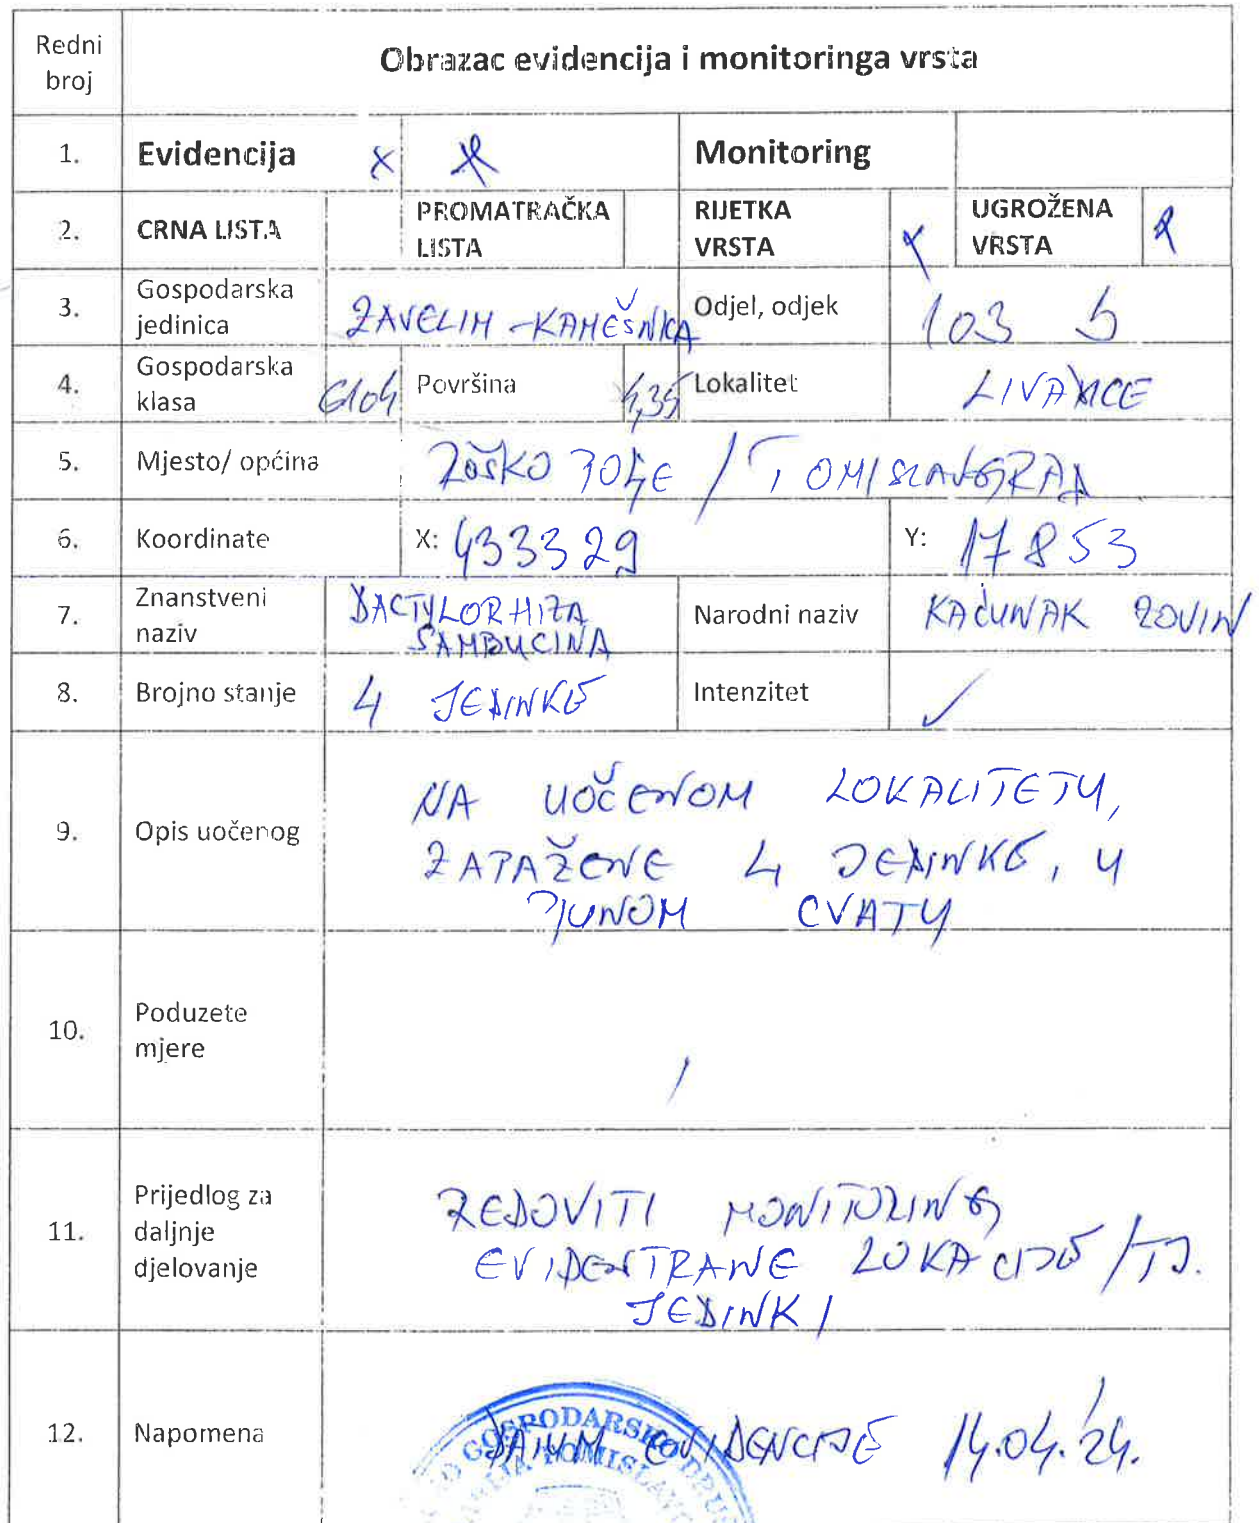 Redni broj
Obrazac evidencija i monitoringa vrsta
1. Evidencija x x Monitoring
2. CRNA LISTA PROMATRAČKA LISTA RIJETKA VRSTA x UGROŽENA VRSTA x
3. Gospodarska jedinica ZAVELIM-KAMEŠNICA Odjel, odjek 103 b
4. Gospodarska klasa 6104 Površina 4,35 Lokalitet
5. Mjesto/ općina ROŠKO POLJE / TOMISLAVGRAD
6. Koordinate X: 433329 Y: 17853
7. Znanstveni naziv DACTYLORHIZA SAMBUCINA Narodni naziv KAĆUNAK ZOVIN
8. Brojno stanje 4 JEDINKE Intenzitet
9. Opis uočenog
NA UOČENOM LOKALITETU,
ZAPAŽENE 4 JEDINKE, U
PUNOM CVATU
10. Poduzete mjere /
11. Prijedlog za daljnje djelovanje
REDOVITI MONITORING
EVIDENTRANE LOKACIJE / TJ.
JEDINKI
12. Napomena
DATUM EVIDENCIJE 14.04.'24.
GOSPODARSKO DRU